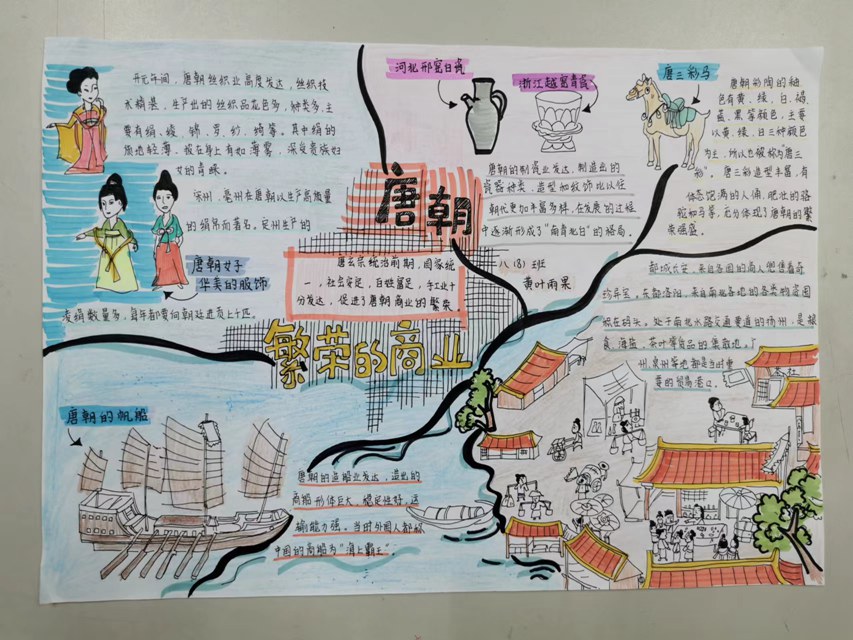 开元年间，唐朝丝织业高度发达，丝织技
术精湛，生产出的丝织品花色多，种类多，主
要有绢、绫、锦、罗、纱、绮等，其中绢的
质地轻薄，披在身上有如薄雾，深受贵族妇
女的青睐。
宋州、亳州在唐以生产高质量
的绢帛而著名，定州生产的
凌绢数量多，每年都要向朝廷进贡上千匹
唐朝女子
华美的服饰
河北邢窑白瓷
浙江越窑青瓷
唐三彩马
唐朝的制瓷业发达，制造出的
瓷器种类、造型和纹饰比以往
朝代更加丰富多样，在发展的过程
中逐渐形成了“南青北白”的格局。
唐朝彩陶的釉
色有黄、绿、白、褐、
蓝、黑等颜色，主要
以黄、绿、白三种颜色
为主，所以也被称为唐三
彩”。唐三彩造型丰富，有
体态饱满的人俑，肥壮的骆
驼和马等，充分体现了唐朝的繁
荣偏盛。
唐朝
唐玄宗统治前期，国家统
一，社会安定，百姓富足，手工业十
分发达，促进了唐朝商业的繁荣。
八（8）班
黄叶雨果
繁荣的商业
都城长安，来自各国的商人兜售着奇
珍异宝，东都洛阳，来自南北各地的各类物资囤
积在码头，处于南北水路交通要道的扬州，是粮
食、海盐、茶叶等货品的集散地，广
州、泉州等地都是当时重
要的贸易港口。
唐朝的帆船
唐朝的造船业发达，造出的
商船形体巨大，稳定性好，运
输能力强。当时外国人都称
中国的商船为“海上霸王”